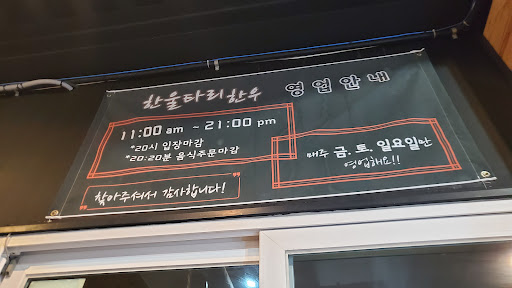 한울타리한우 영업안내
11:00 am ~ 21:00 pm
*20시 입장마감
*20:20분 음식주문마감
매주 금, 토, 일요일만
영업해요!!
찾아주셔서 감사합니다!